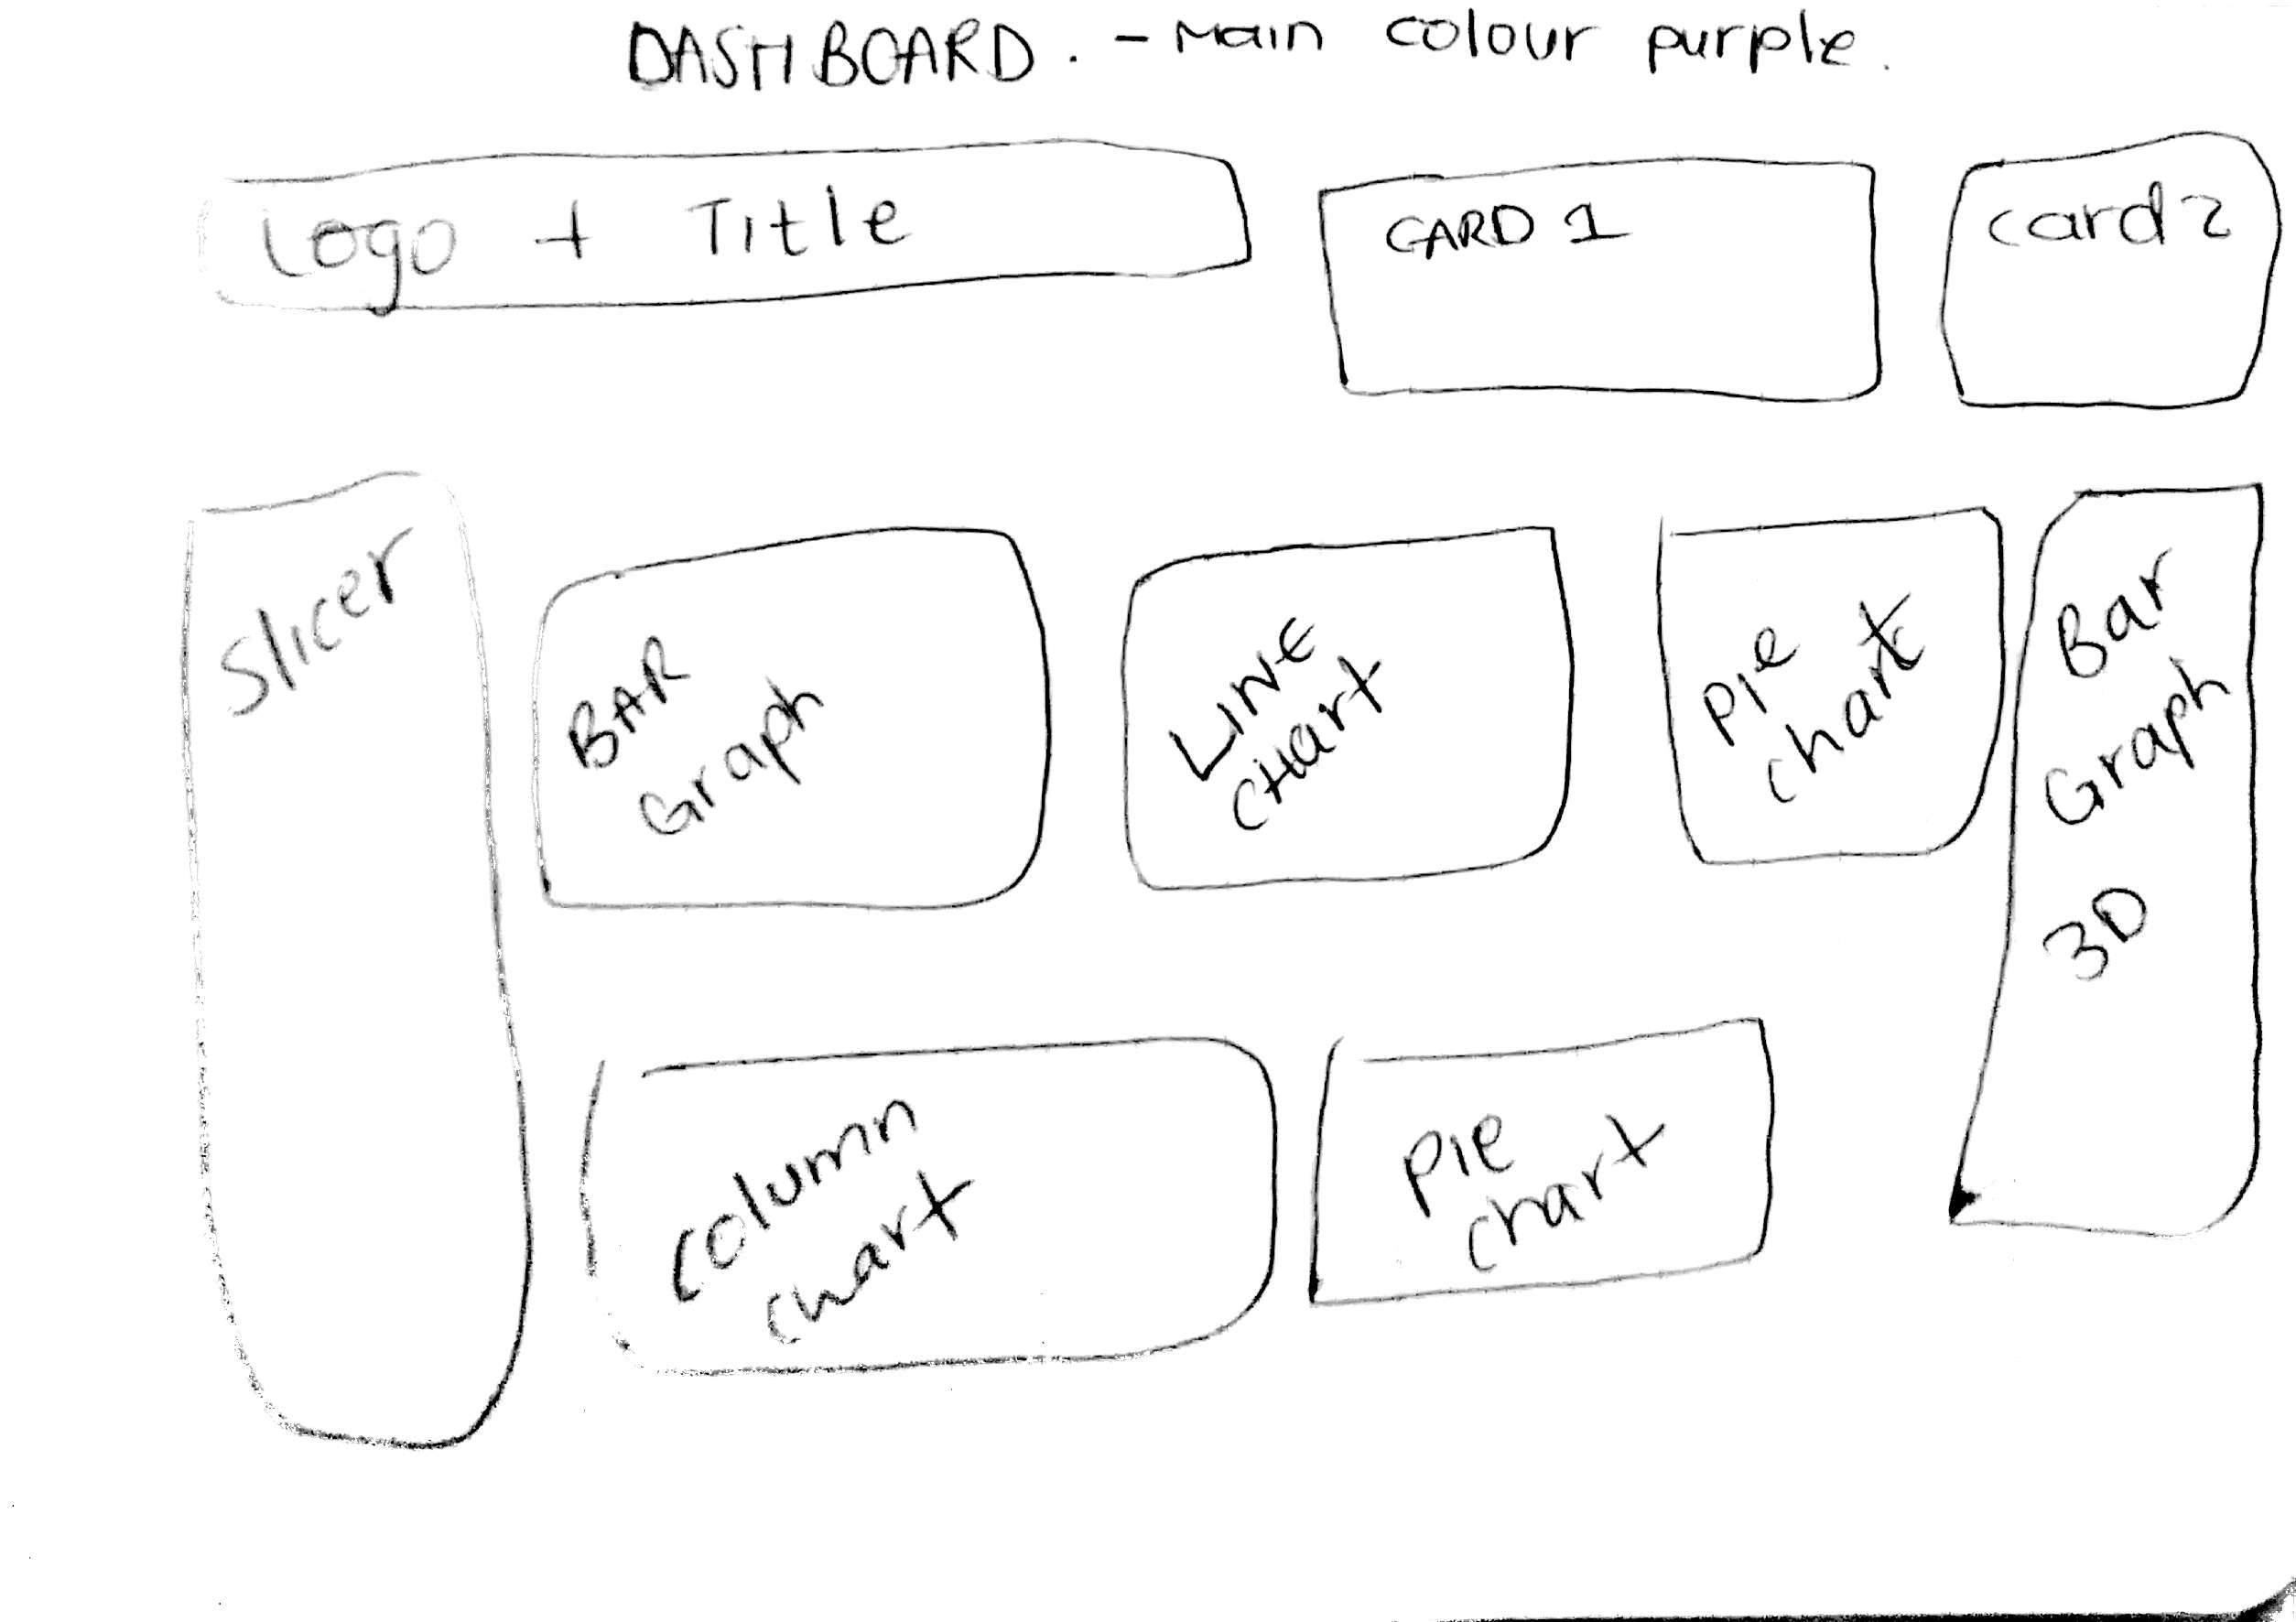 DASHBOARD. - Main colour purple.
Logo + Title
CARD 1
card 2
Slicer
BAR
Graph
LINE
CHart
Pie
chart
Bar
Graph
3D
column
chart
PIE
chart